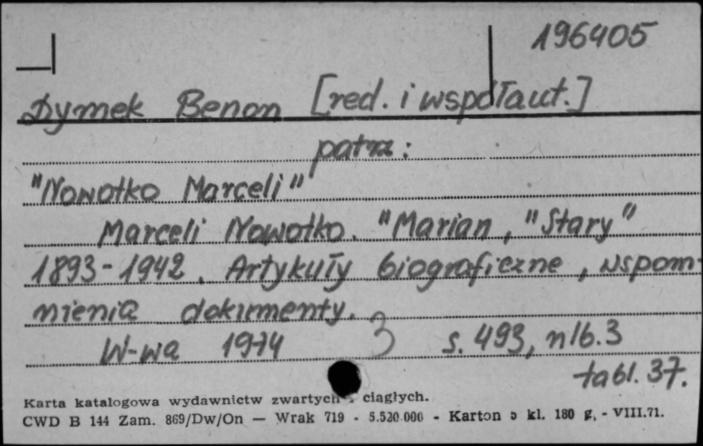 196405
Dymek Benon [red. i współaut.]
patrz:
"Nowotko Marceli"
Marceli Nowotko. "Marian", "Stary"
1893-1942. Artykuły biograficzne, wspom-
nienia dokumenty.
W-wa 1974 3 s. 493, nlb. 3
tabl. 37.
Karta katalogowa wydawnictw zwartych ciągłych.
CWD B 144 Zam. 869/Dw/On — Wrak 719 - 5.520.000 - Karton kl. 180 g. - VIII.71.